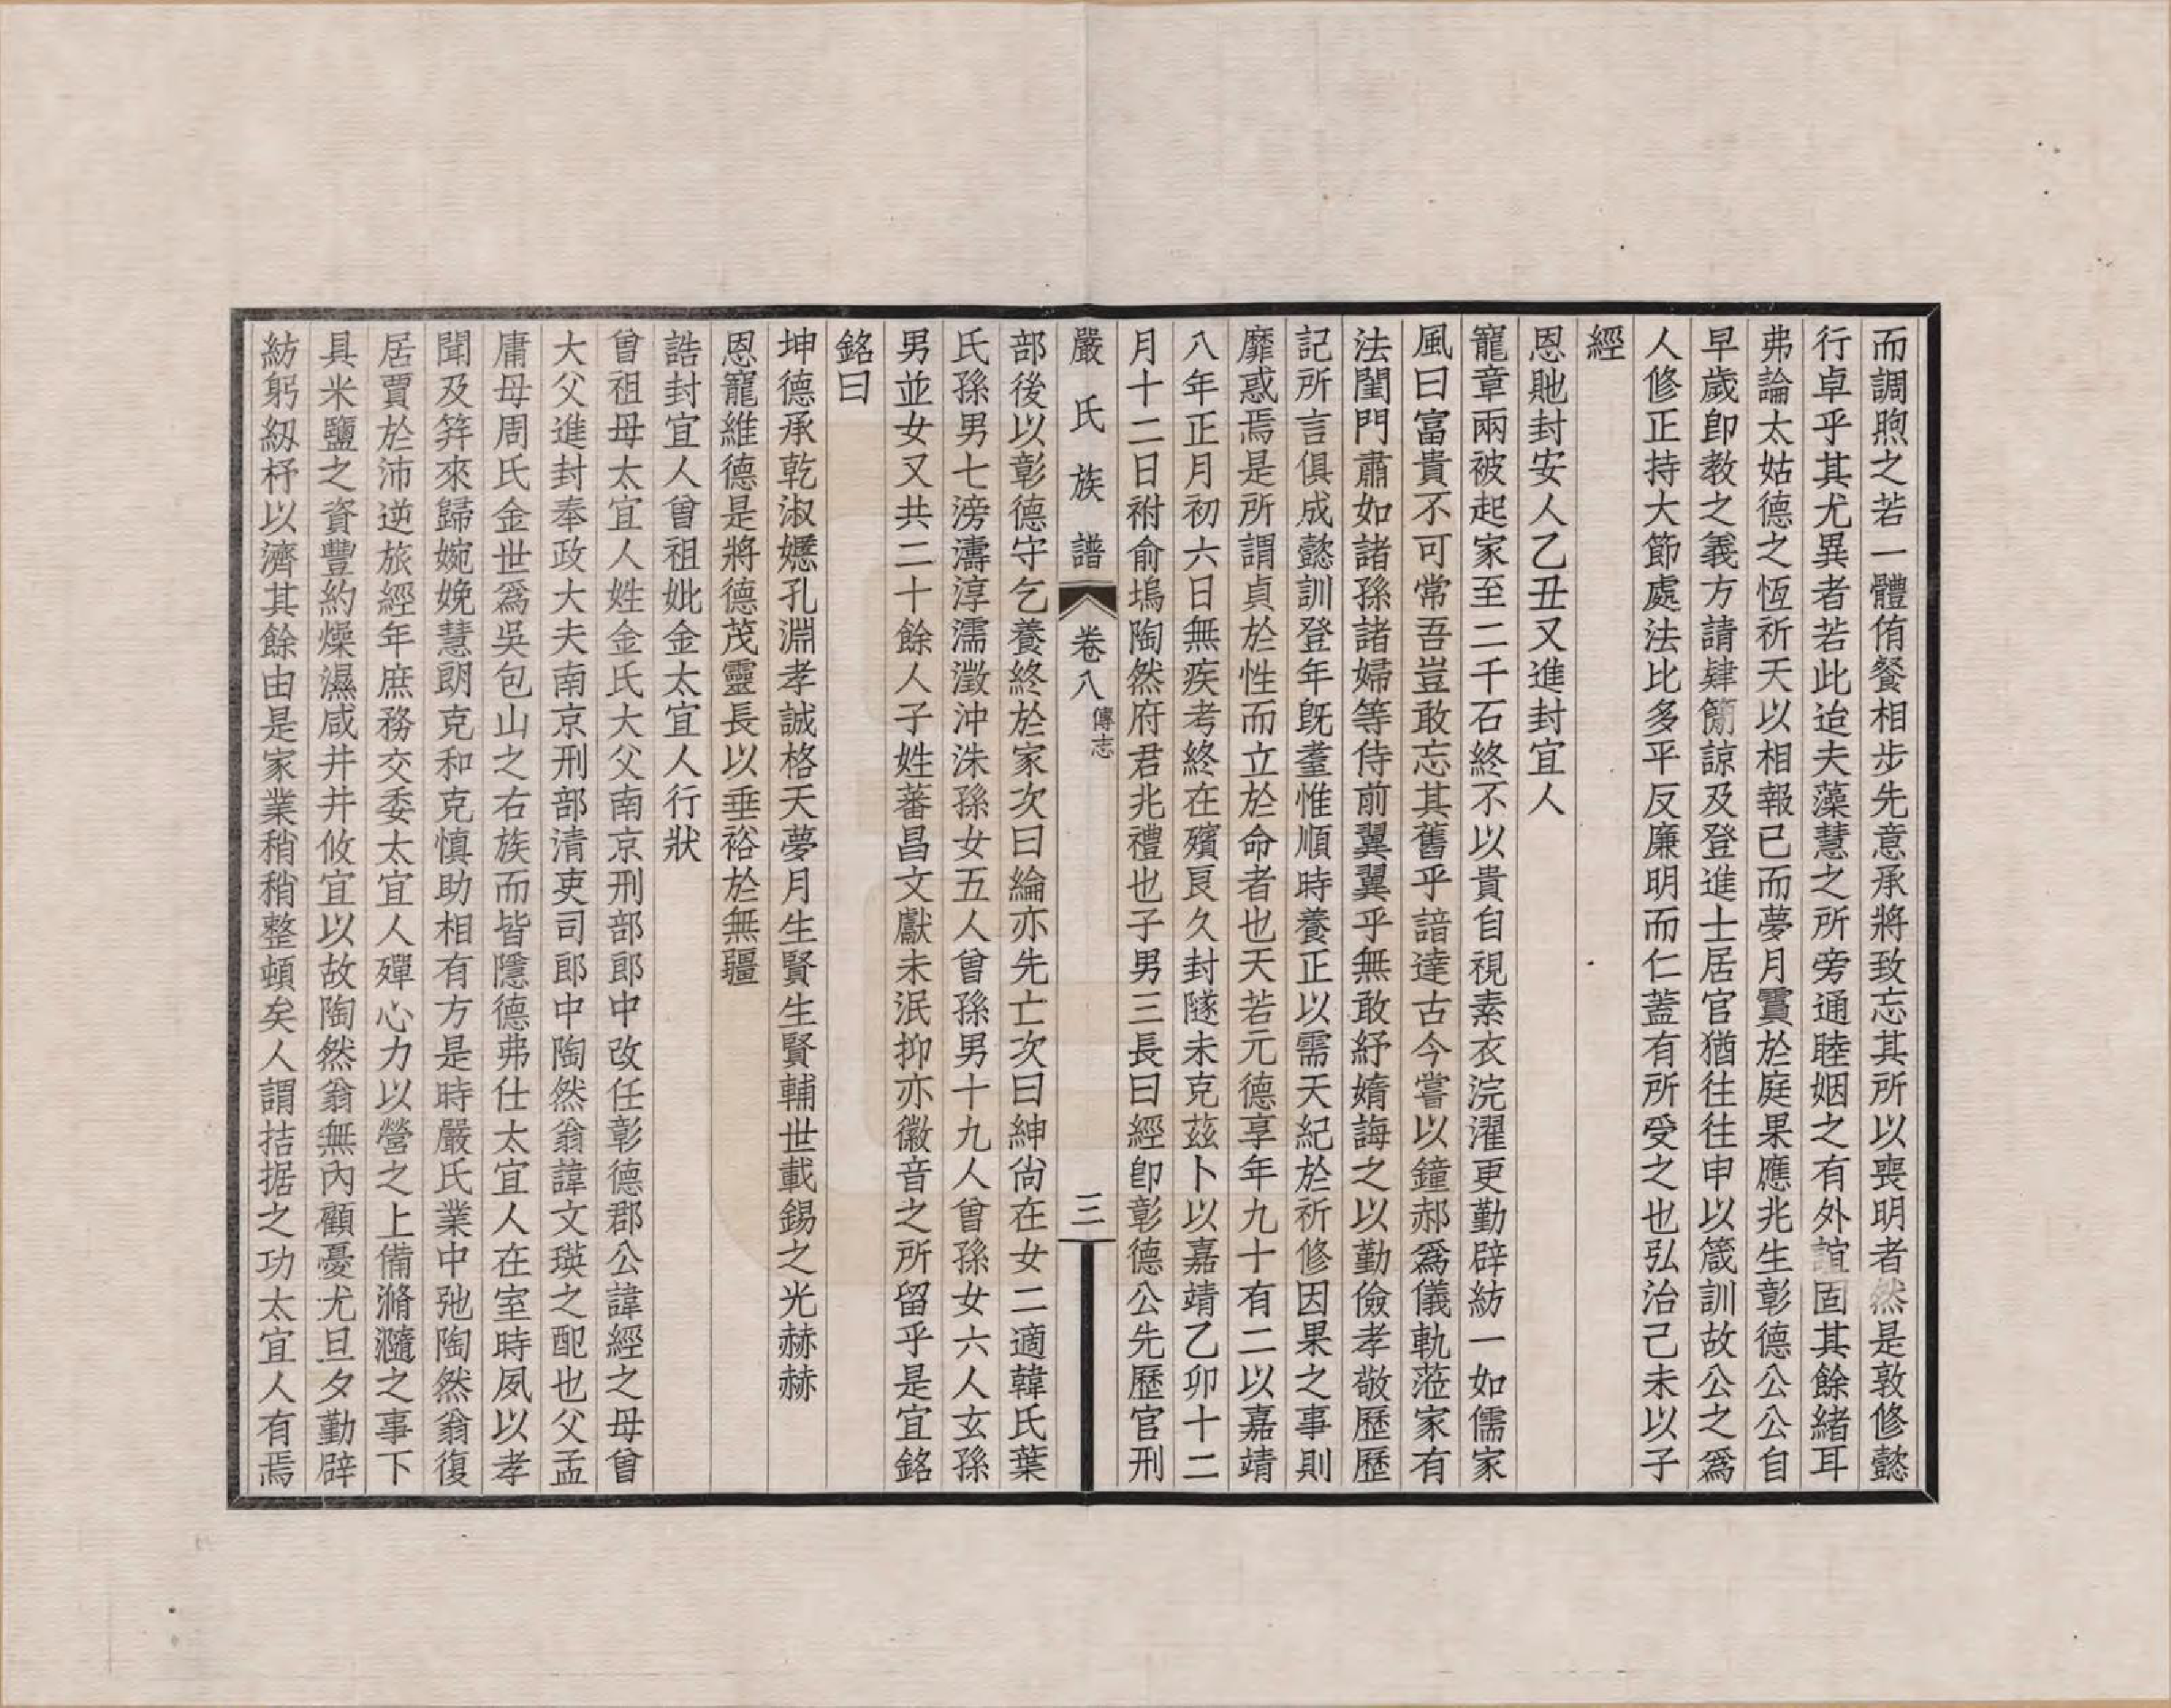 而調煦之若一體侑餐相步先意承將致忘其所以喪明者然是敦修懿
行卓乎其尤異者若此迨夫藻慧之所旁通睦姻之有外誼固其餘緒耳
弗論太姑德之恆祈天以相報已而夢月霣於庭果應兆生彰德公公自
早歲卽教之義方請肄簡諒及登進士居官猶往往申以箴訓故公之爲
人修正持大節處法比多平反廉明而仁蓋有所受之也弘治己未以子
經
恩貤封安人乙丑又進封宜人
寵章兩被起家至二千石終不以貴自視素衣浣濯更勤辟紡一如儒家
風曰富貴不可常吾豈敢忘其舊乎諳達古今嘗以鐘郝爲儀軌蒞家有
法閨門肅如諸孫諸婦等侍前翼翼乎無敢紓媠誨之以勤儉孝敬歷歷
記所言俱成懿訓登年旣耋惟順時養正以需天紀於祈修因果之事則
靡惑焉是所謂貞於性而立於命者也天若元德享年九十有二以嘉靖
八年正月初六日無疾考終在殯艮久封隧未克茲卜以嘉靖乙卯十二
月十二日祔俞塢陶然府君兆禮也子男三長曰經卽彰德公先歷官刑
嚴氏族譜 卷八 傳志 三
部後以彰德守乞養終於家次曰綸亦先亡次曰紳尙在女二適韓氏葉
氏孫男七滂濤淳濡澂沖洙孫女五人曾孫男十九人曾孫女六人玄孫
男並女又共二十餘人子姓蕃昌文獻未泯抑亦徽音之所留乎是宜銘
銘曰
坤德承乾淑嬺孔淵孝誠格天夢月生賢生賢輔世載錫之光赫赫
恩寵維德是將德茂靈長以垂裕於無疆
誥封宜人曾祖妣金太宜人行狀
曾祖母太宜人姓金氏大父南京刑部郎中改任彰德郡公諱經之母曾
大父進封奉政大夫南京刑部清吏司郎中陶然翁諱文瑛之配也父孟
庸母周氏金世爲吳包山之右族而皆隱德弗仕太宜人在室時夙以孝
聞及笄來歸婉娩慧朗克和克慎助相有方是時嚴氏業中弛陶然翁復
居賈於沛逆旅經年庶務交委太宜人殫心力以營之上備滫瀡之事下
具米鹽之資豐約燥濕咸井井攸宜以故陶然翁無內顧憂尤旦夕勤辟
紡躬紉杼以濟其餘由是家業稍稍整頓矣人謂拮据之功太宜人有焉